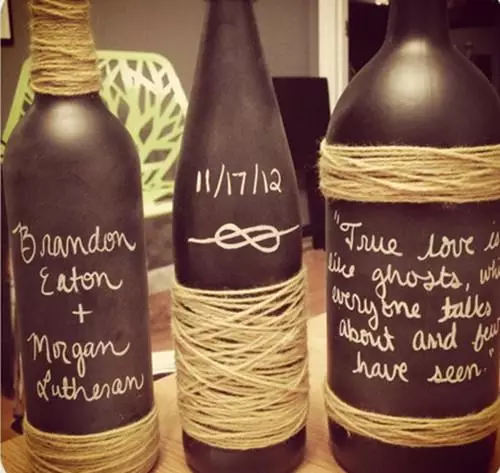 Brandon
Eaton
+
Morgan
Lutheran
11/17/12
"True love is
like ghosts, which
everyone talks
about and few
have seen."